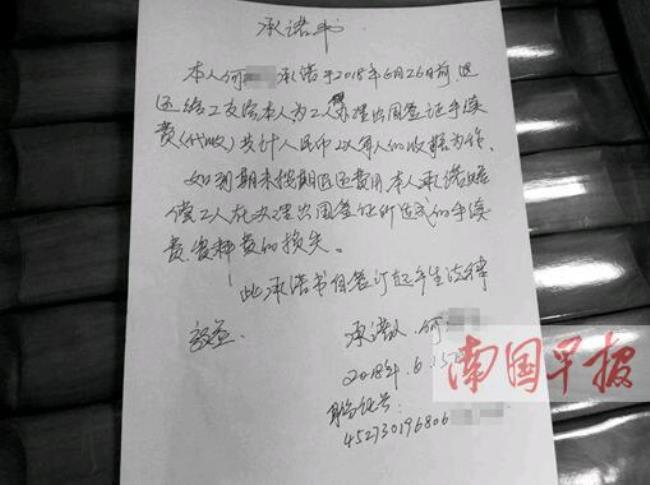 承诺书
本人何 承诺于2018年6月26日前退
还给工友陈本人为工人办理出国签证手续
费(代收)共计人民币以军人的收据为作、
如到期未按期退还费用,本人承诺赔
偿工人在办理出国签证所造成的手续
费、各种费的损失。
此承诺书自签订起产生法律
效益.
承诺人:何
2018年.6.15
身份证号:
452730196806
南国早报